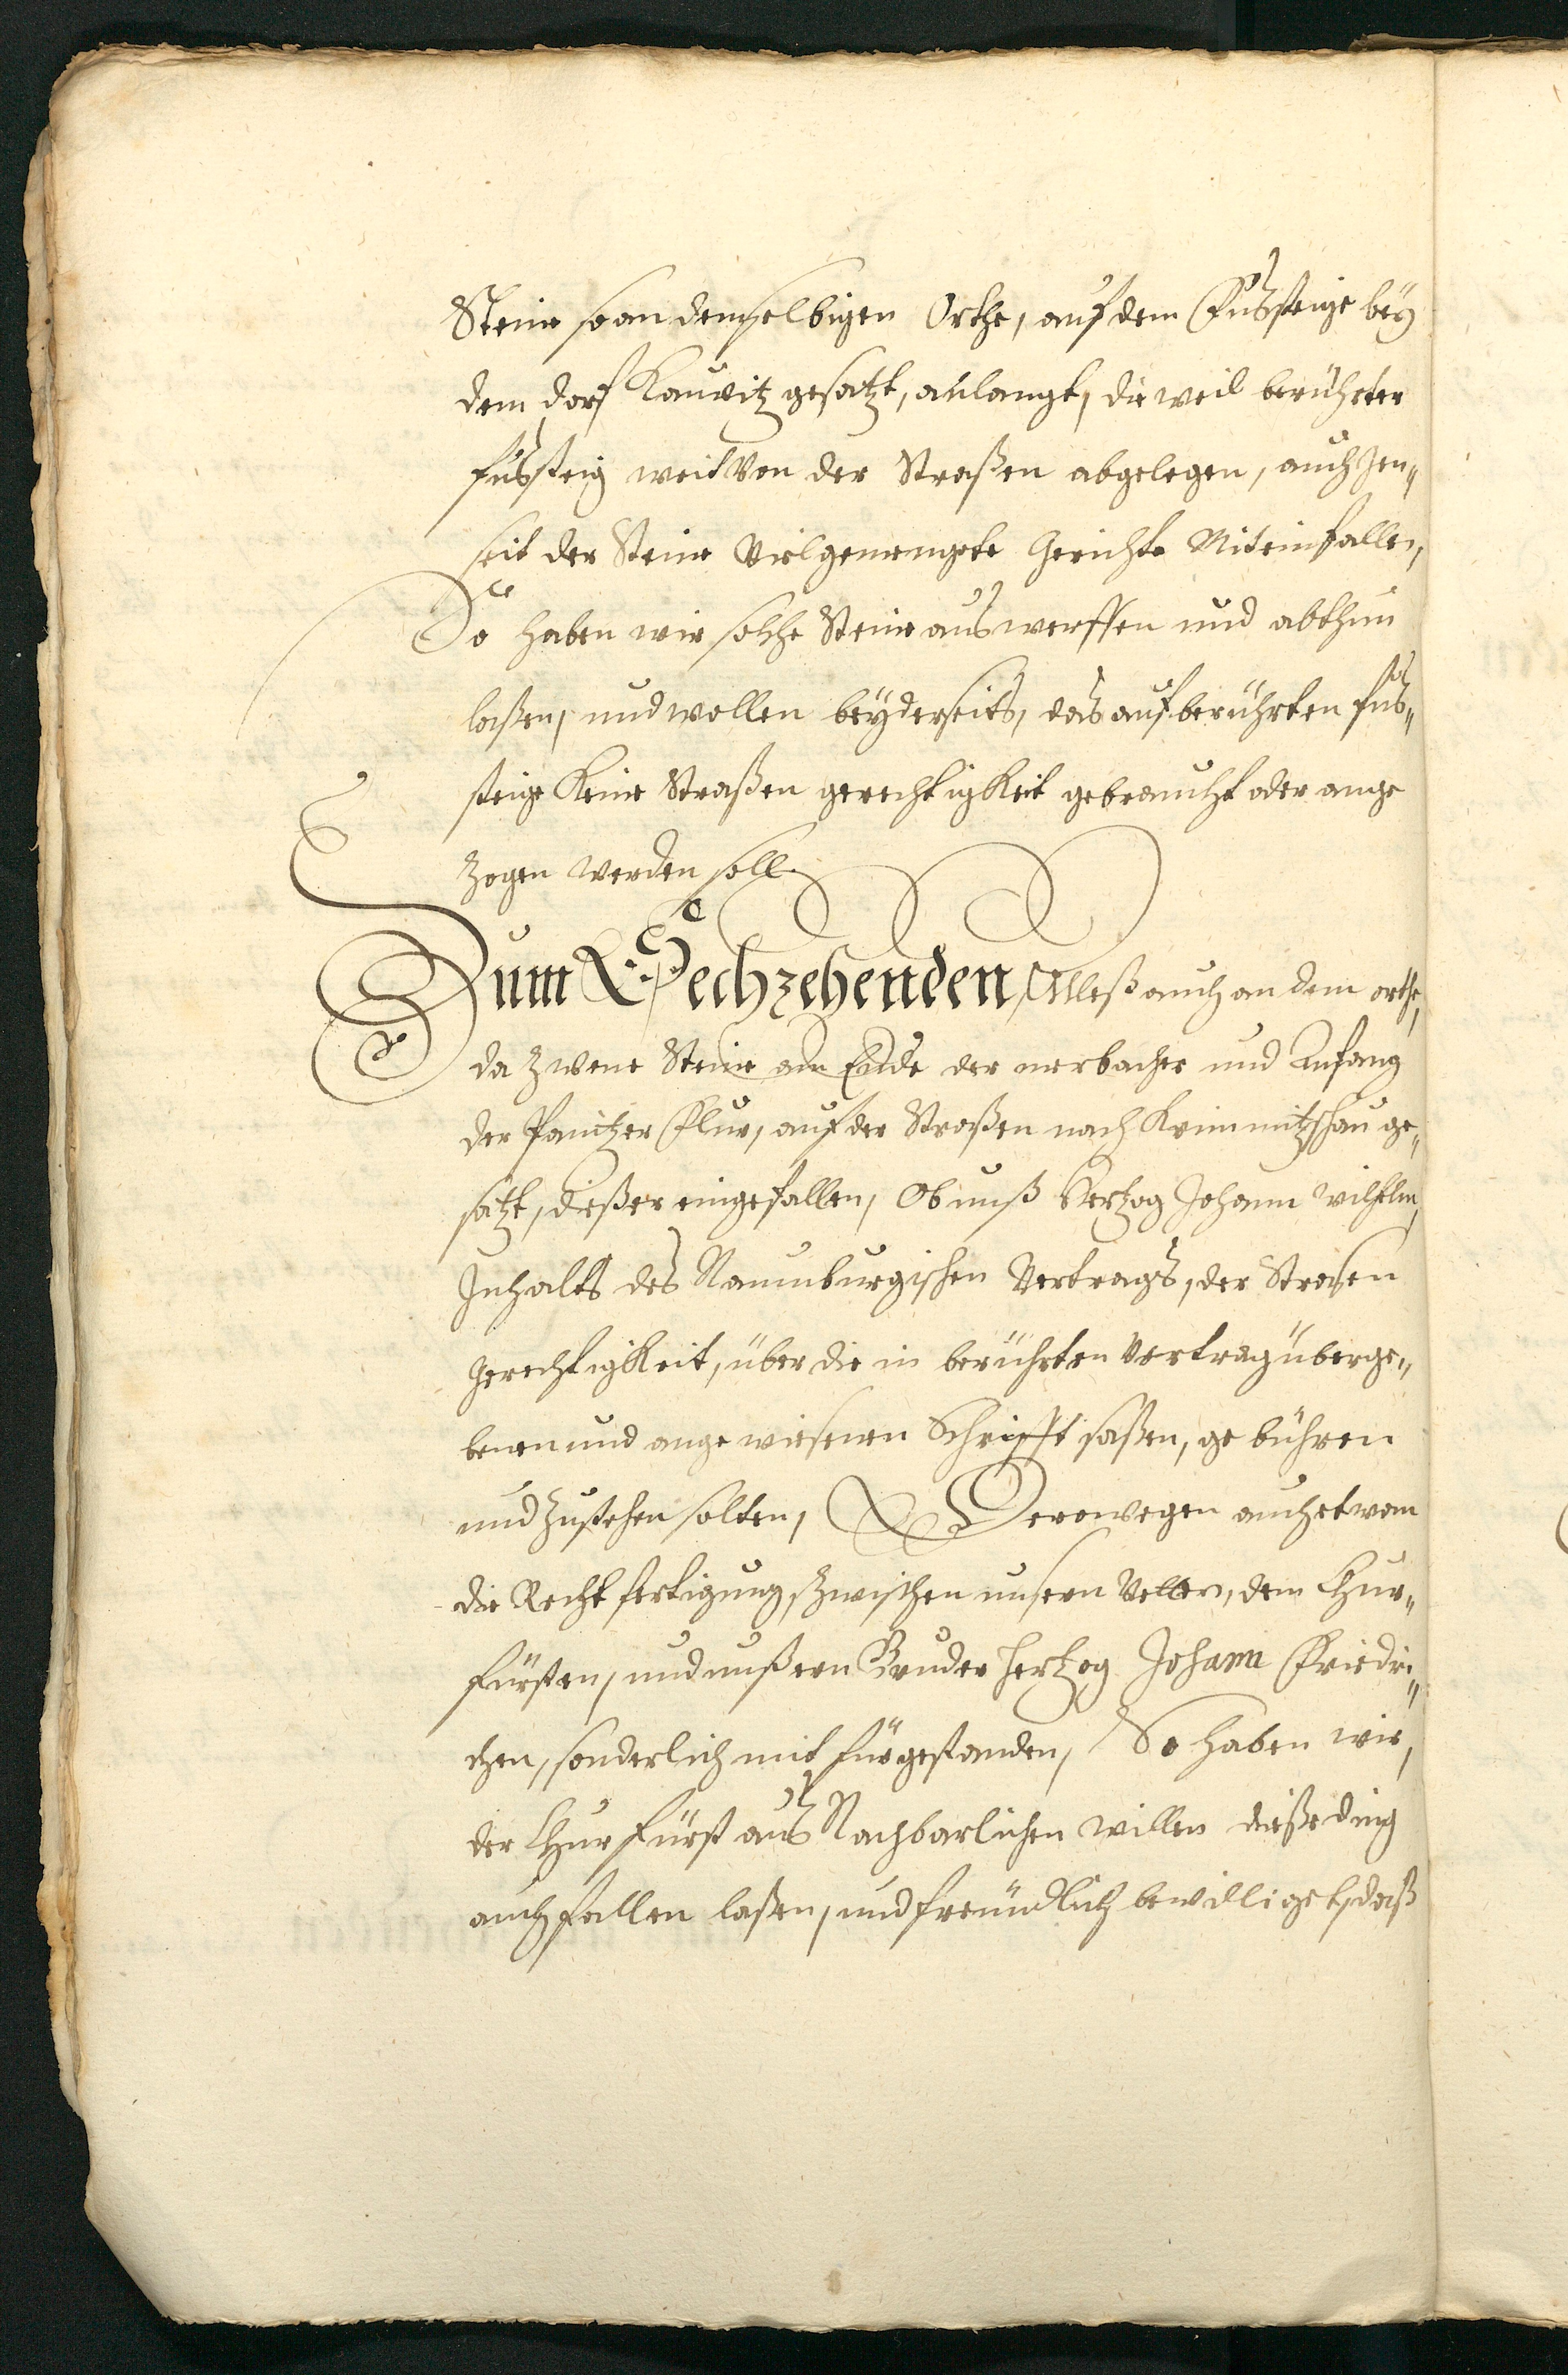 Steine so an demselbigen Orthe, auf dem Fußsteige beÿ
dem dorf Kauritz gesatzt, anlangt, die weil berührter
fußsteig weit von der Straßen abgelegen, auch Jen„
seit der Steine Vielgemengete Gerichte Miteinfallen,
So haben wir solche Steine aus werffen und abthun
laßen, und wollen beÿderseits, das auf berührten fus„
steige Keine Straßen gerechtigkeit gebraucht oder ange
zogen werden soll.
Zum Sechzehenden, Alleß auch an dem orthe,
da zwene Steine am Ende der merbacher und Anfang
der Panitzer Flur, auf der Straßen nach Krimmitzschau ge„
satzt, dießer eingefallen, Ob unß Hertzog Johann Wilhelm,
Inhalts des Naumburgischen Vertrags, der Strasen
gerechtigkeit, über die in berührten Vertrag überge„
benen und ange wiesenen Schrifft saßen, ge bühren
und zustehen solten, Derowegen auch etwan
die Rechtfertigung, zwischen unsern Vettern, dem Chur„
fürsten, und unßern Bruder Hertzog Johann Friedri„
chen, sonderlich mit fürgestanden, So haben wir,
der Churfürst aus Nachbarlichen willen dieße ding
auch fallen laßen, und freundlich bewilliget, daß